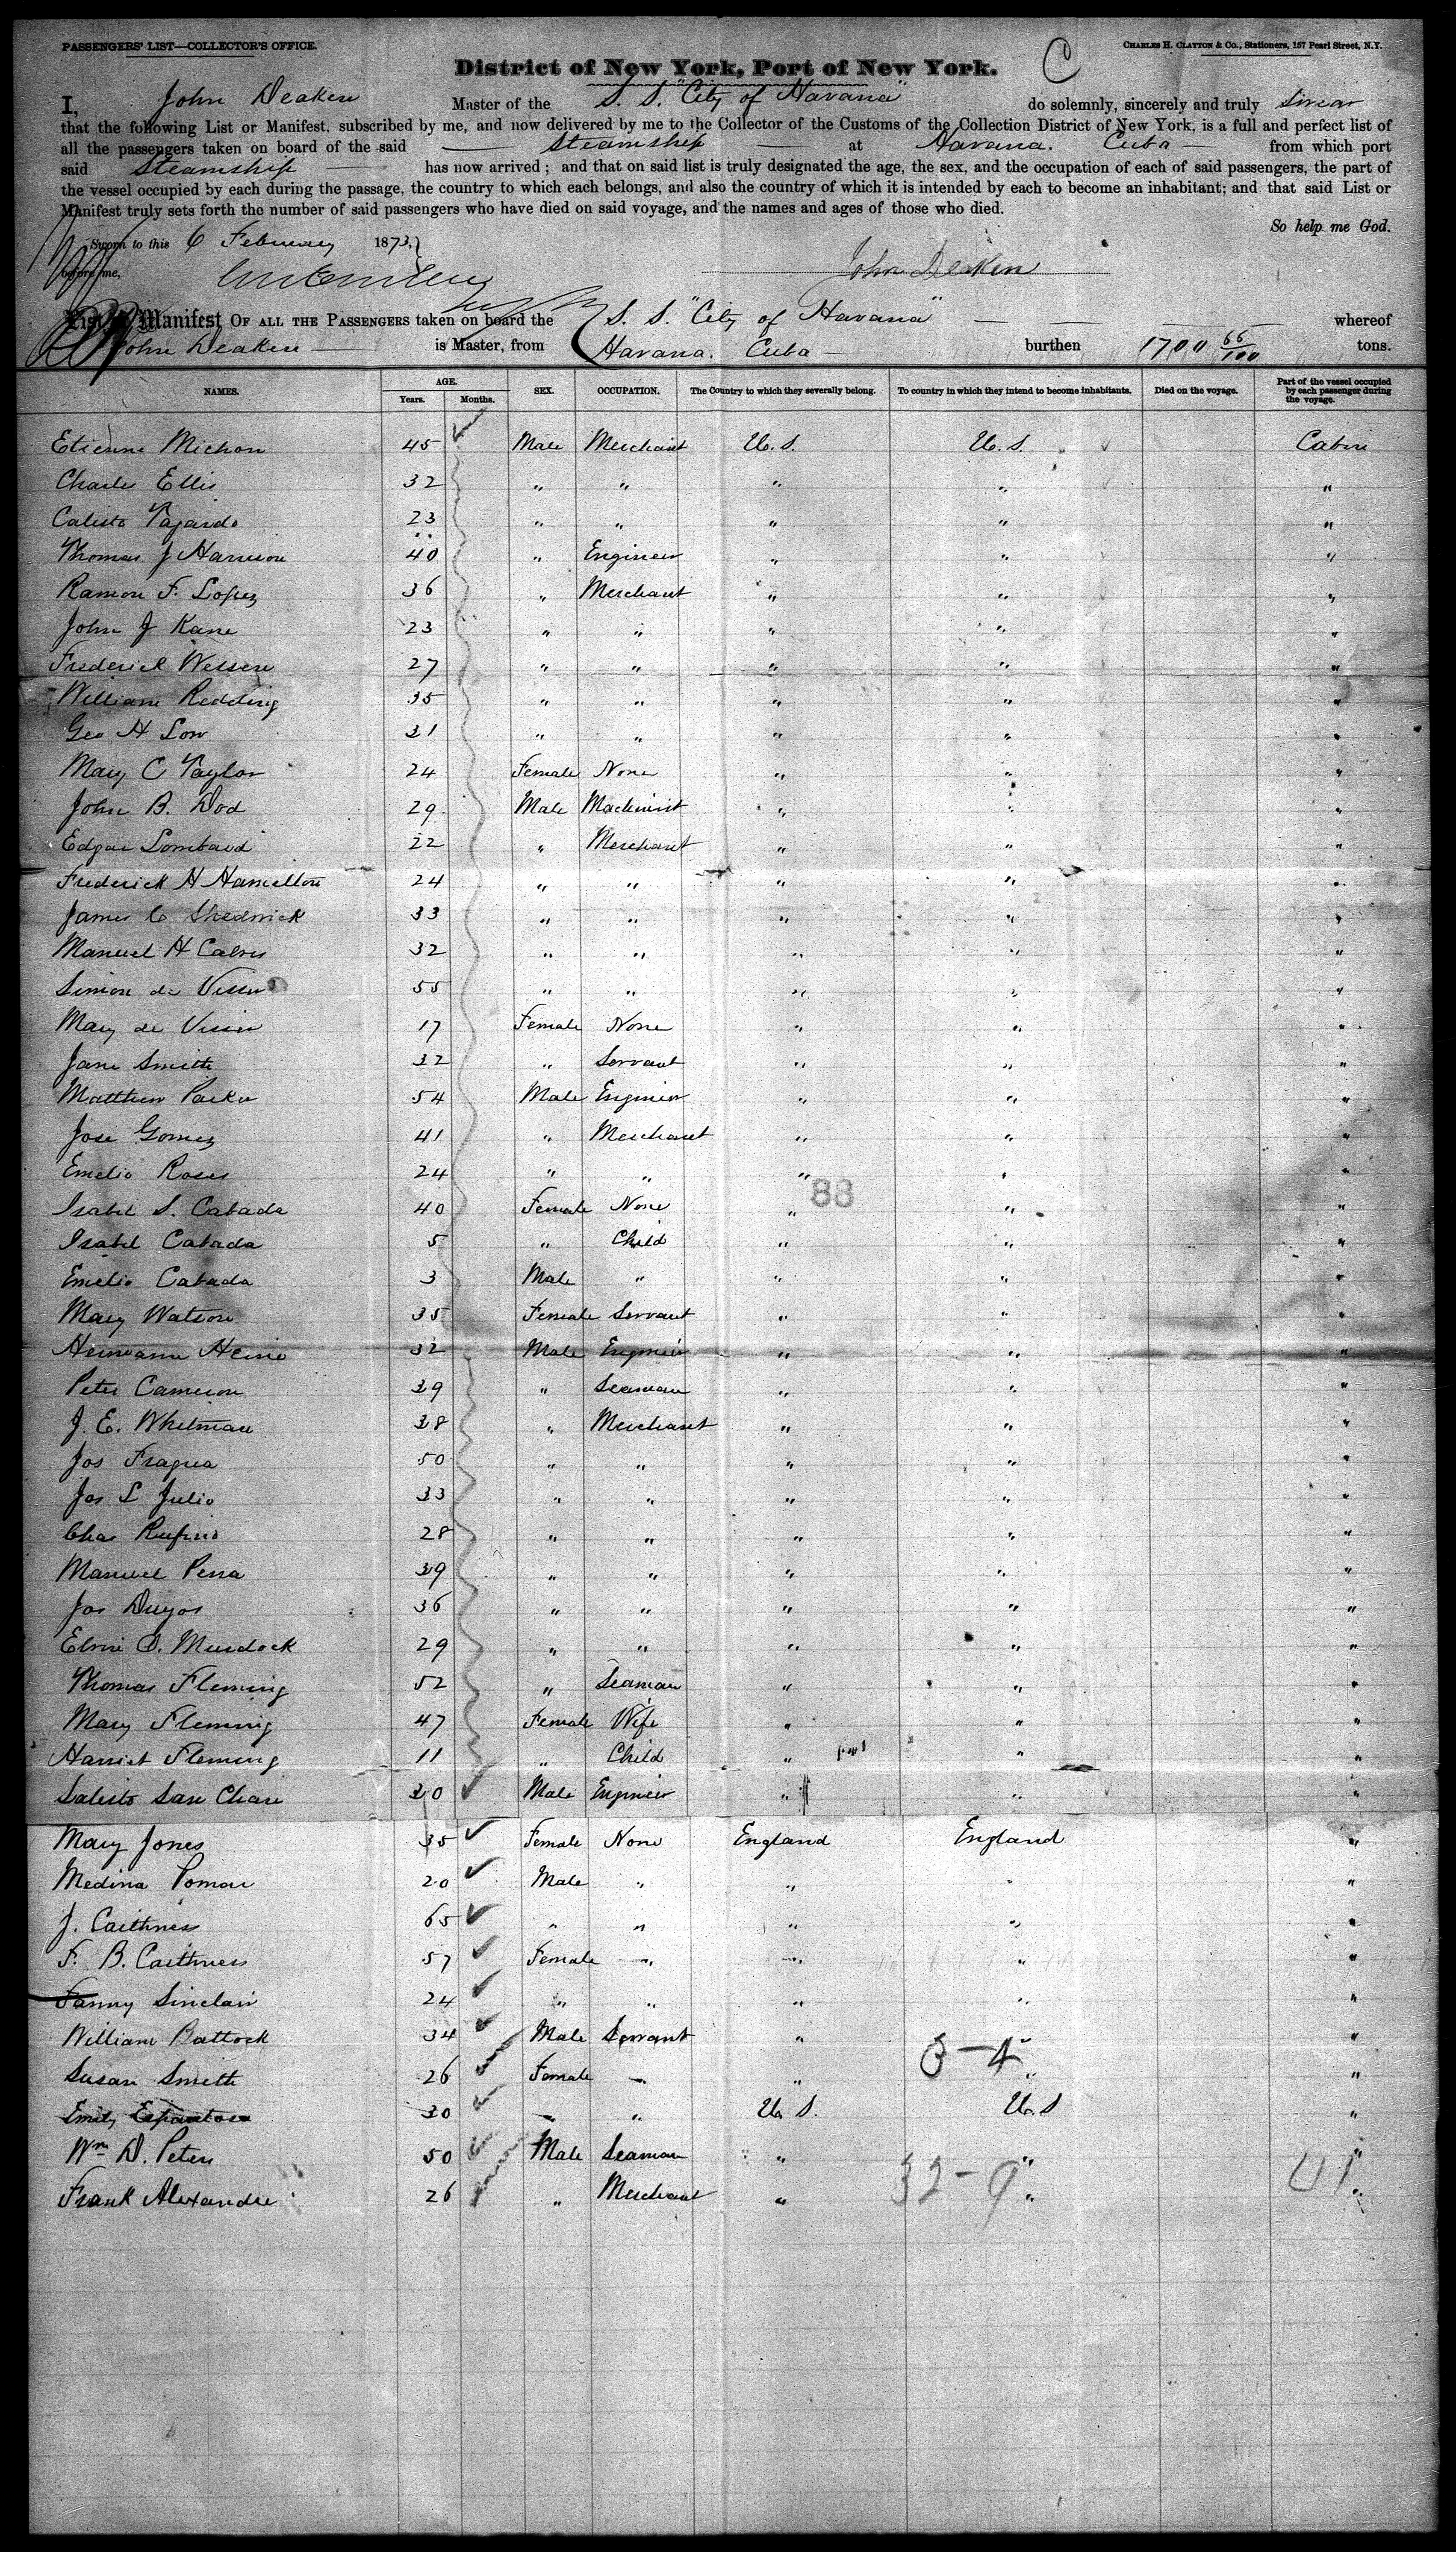 PASSENGERS' LIST—COLLECTOR'S OFFICE.
CHARLES H. CLAYTON & CO., Stationers, 157 Pearl Street, N.Y.
C
District of New York, Port of New York.
I, John Deaken Master of the S. S. "City of Havana" do solemnly, sincerely and truly swear
that the following List or Manifest, subscribed by me, and now delivered by me to the Collector of the Customs of the Collection District of New York, is a full and perfect list of
all the passengers taken on board of the said Steamship at Havana. Cuba from which port
said Steamship has now arrived; and that on said list is truly designated the age, the sex, and the occupation of each of said passengers, the part of
the vessel occupied by each during the passage, the country to which each belongs, and also the country of which it is intended by each to become an inhabitant; and that said List or
Manifest truly sets forth the number of said passengers who have died on said voyage, and the names and ages of those who died.
So help me God.
Sworn to this 6 February 1873,
before me,
John Deaken
List or Manifest OF ALL THE PASSENGERS taken on board the S. S. "City of Havana" whereof
John Deaken is Master, from Havana. Cuba burthen 1700 66/100 tons.
NAMES. AGE. Years. Months. SEX. OCCUPATION. The Country to which they severally belong. To country in which they intend to become inhabitants. Died on the voyage. Part of the vessel occupied by each passenger during the voyage.
Etienne Michon 45 Male Merchant U. S. U. S. Cabin
Charles Ellis 32 " " " " "
Calisto Fajardo 23 " " " " "
Thomas J Harrison 40 " Engineer " " "
Ramon F. Lopez 36 " Merchant " " "
John J Kane 23 " " " " "
Frederick Wessen 27 " " " " "
William Redding 35 " " " " "
Geo H Low 31 " " " " "
Mary C Taylor 24 Female None " " "
John B. Dod 29 Male Machinist " " "
Edgar Lombard 22 " Merchant " " "
Frederick H Hamelton 24 " " " " "
James C Shedrick 33 " " " " "
Manuel H Calvis 32 " " " " "
Simon de Visser 55 " " " " "
Mary de Visser 17 Female None " " "
Jane Smith 32 " Servant " " "
Matthew Parker 54 Male Engineer " " "
Jose Gomez 41 " Merchant " " "
Emelio Roses 24 " " " " "
88
Isabel S. Cabada 40 Female None " " "
Isabel Cabada 5 " Child " " "
Emelio Cabada 3 Male " " " "
Mary Watson 35 Female Servant " " "
Hermann Heine 32 Male Engineer " " "
Peter Cameron 39 " Seaman " " "
J. E. Whitman 38 " Merchant " " "
Jos Fragua 50 " " " " "
Jos L Julio 33 " " " " "
Chas Rufino 28 " " " " "
Manuel Pena 39 " " " " "
Jos Duyos 36 " " " " "
Murdock 29 " " " " "
Thomas Fleming 52 " Seaman " " "
Mary Fleming 47 Female Wife " " "
Harriet Fleming 11 " Child " " "
Salisto San Chari 30 Male Engineer " " "
Mary Jones 35 Female None England England "
Medina Pomar 20 Male " " " "
J. Caithness 65 " " " " "
F. B. Caithness 57 Female " " " "
Fanny Sinclair 24 " " " " "
William Battock 34 Male Servant " " "
3-4
Susan Smith 26 Female " " " "
Emily Espantosa 30 " " U. S. U. S "
Wm D. Peters 50 Male Seaman " " "
Frank Alexandre 26 " Merchant " " "
32-9